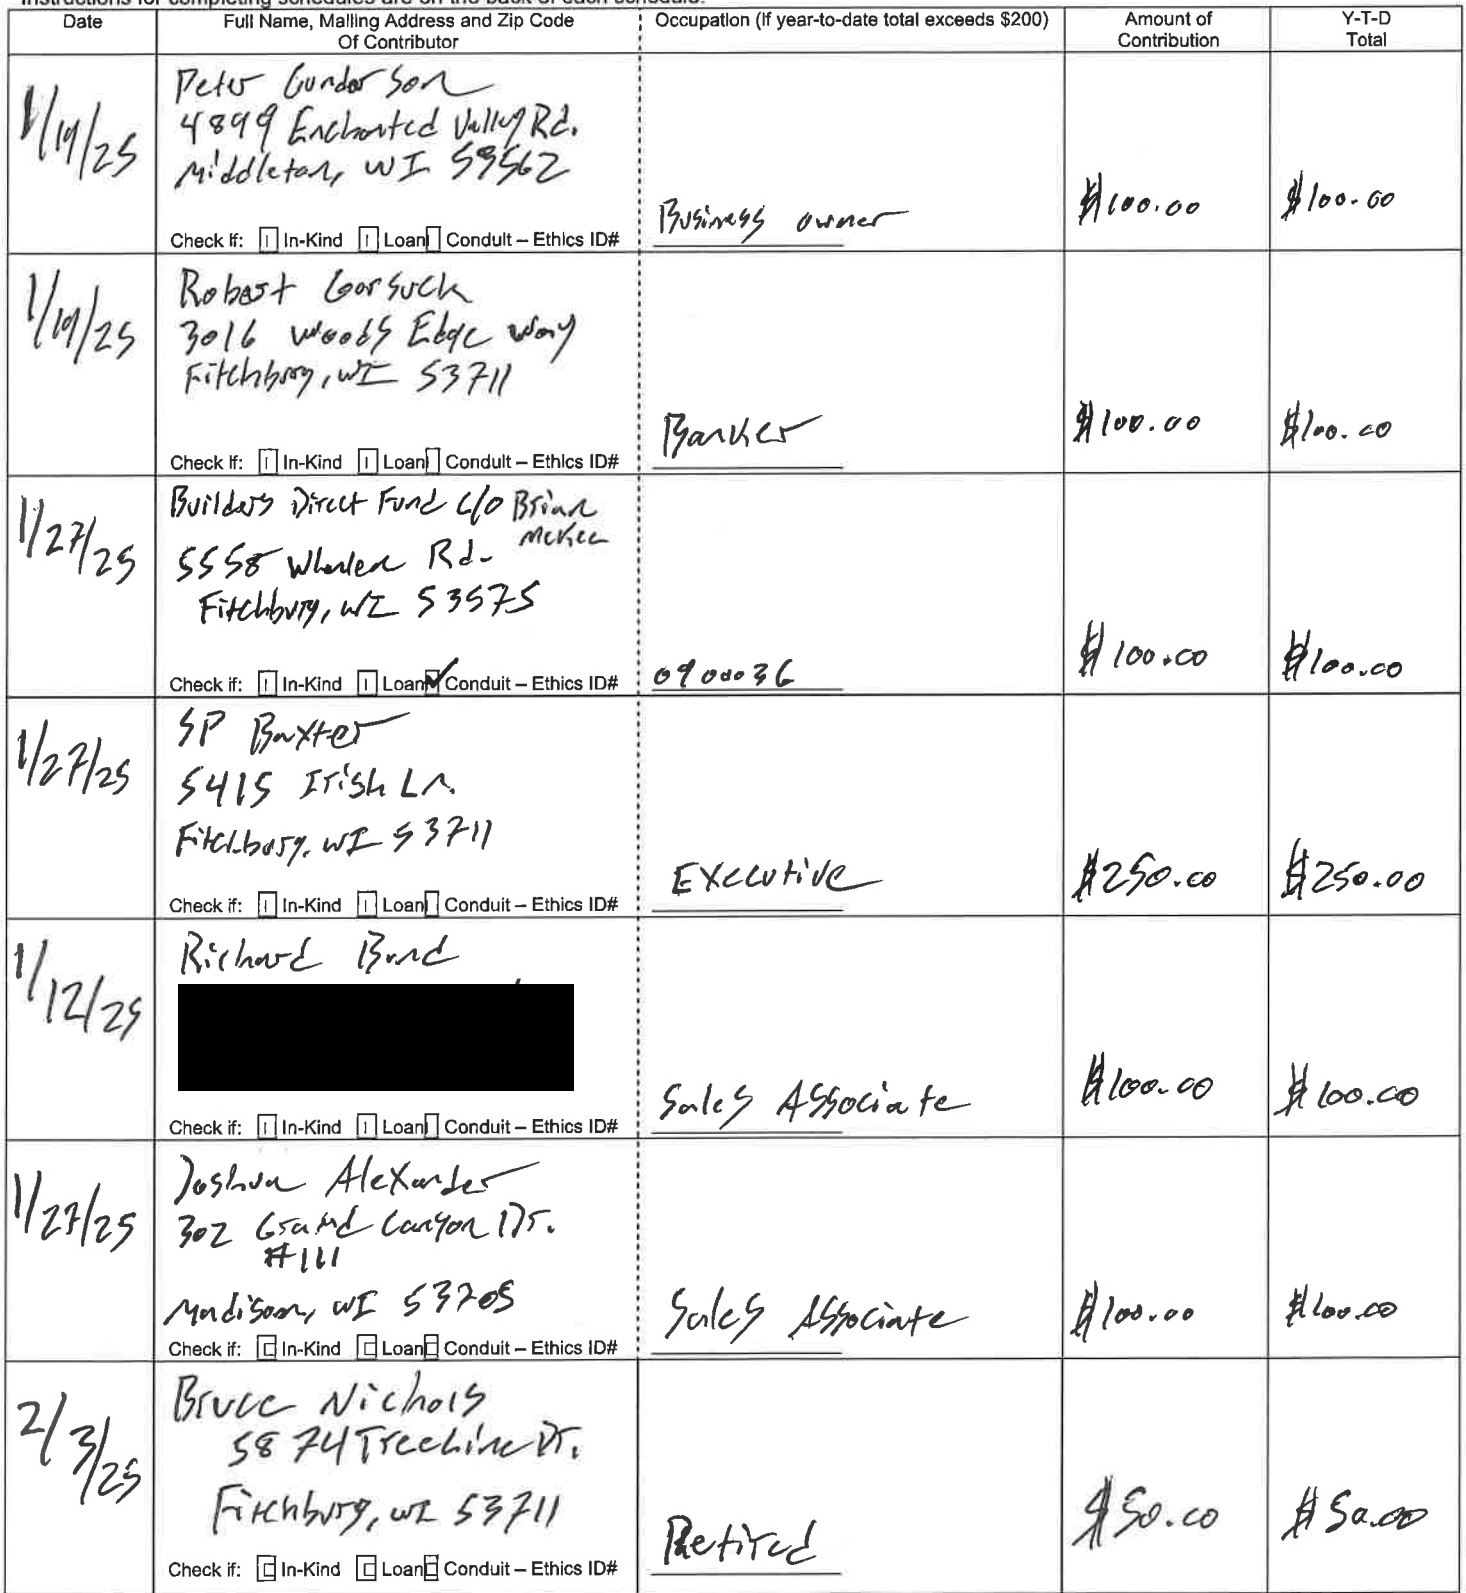 Instructions for completing schedules are on the back of each schedule.
Date
Full Name, Mailing Address and Zip Code
Of Contributor
Occupation (If year-to-date total exceeds $200)
Amount of
Contribution
Y-T-D
Total
1/19/25
Peter Gunderson
4899 Enchanted Valley Rd.
Middleton, WI 59562
Check if: In-Kind Loan Conduit – Ethics ID#
Business owner
$100.00
$100.00
1/19/25
Robert Gorsuch
3016 Woods Edge Way
Fitchburg, WI 53711
Check if: In-Kind Loan Conduit – Ethics ID#
Banker
$100.00
$100.00
1/27/25
Builders Direct Fund c/o Brian
McKee
5558 Whalen Rd.
Fitchburg, WI 53575
Check if: In-Kind Loan Conduit – Ethics ID#
0900036
$100.00
$100.00
1/27/25
SP Baxter
5415 Irish Ln.
Fitchburg, WI 53711
Check if: In-Kind Loan Conduit – Ethics ID#
Executive
$250.00
$250.00
1/12/25
Richard Bond
Check if: In-Kind Loan Conduit – Ethics ID#
Sales Associate
$100.00
$100.00
1/27/25
Joshua Alexander
302 Grand Canyon Dr.
#111
Madison, WI 53705
Check if: In-Kind Loan Conduit – Ethics ID#
Sales Associate
$100.00
$100.00
2/3/25
Bruce Nichols
5874 Treeline Dr.
Fitchburg, WI 53711
Check if: In-Kind Loan Conduit – Ethics ID#
Retired
$50.00
$50.00